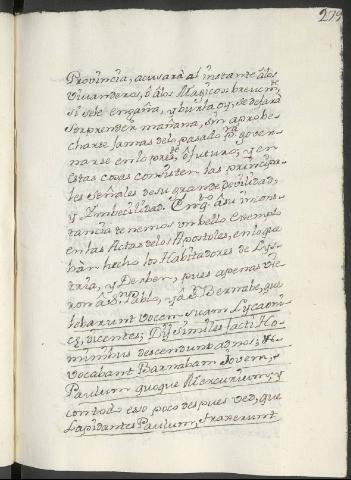 279
Provincia, acusarà al instante à los
vivanderos, ô à los Magicos brevemte
si se le engaña, y burla oy; se dejarà
sorprender mañana, sin aprobe-
charse jamas de lo pasado pa. gover-
narse en lo preste. ô futuro; y en
estas cosas consisten las principa-
les señales de su grande devilidad,
y Imbecilidad. En qto. â su incons-
tancia tenemos un bello exemplo
en las Actas de los Apostoles, en lo que
hàn hecho los Habitadores de Lys-
tria, y Derben, pues apenas vie-
ron â Sn. Pablo, y â Sn. Bernabe, que
lebarunt vocem suam Lycaoni-
ce, dicentes; Dij similes facti Ho-
minibus descenderunt ad nos; et
vocabant Barnabam Jovem,
Paulum quoque Mercurium; y
con todo eso poco despues ved, que
Lapidantes Paulum, traxerunt